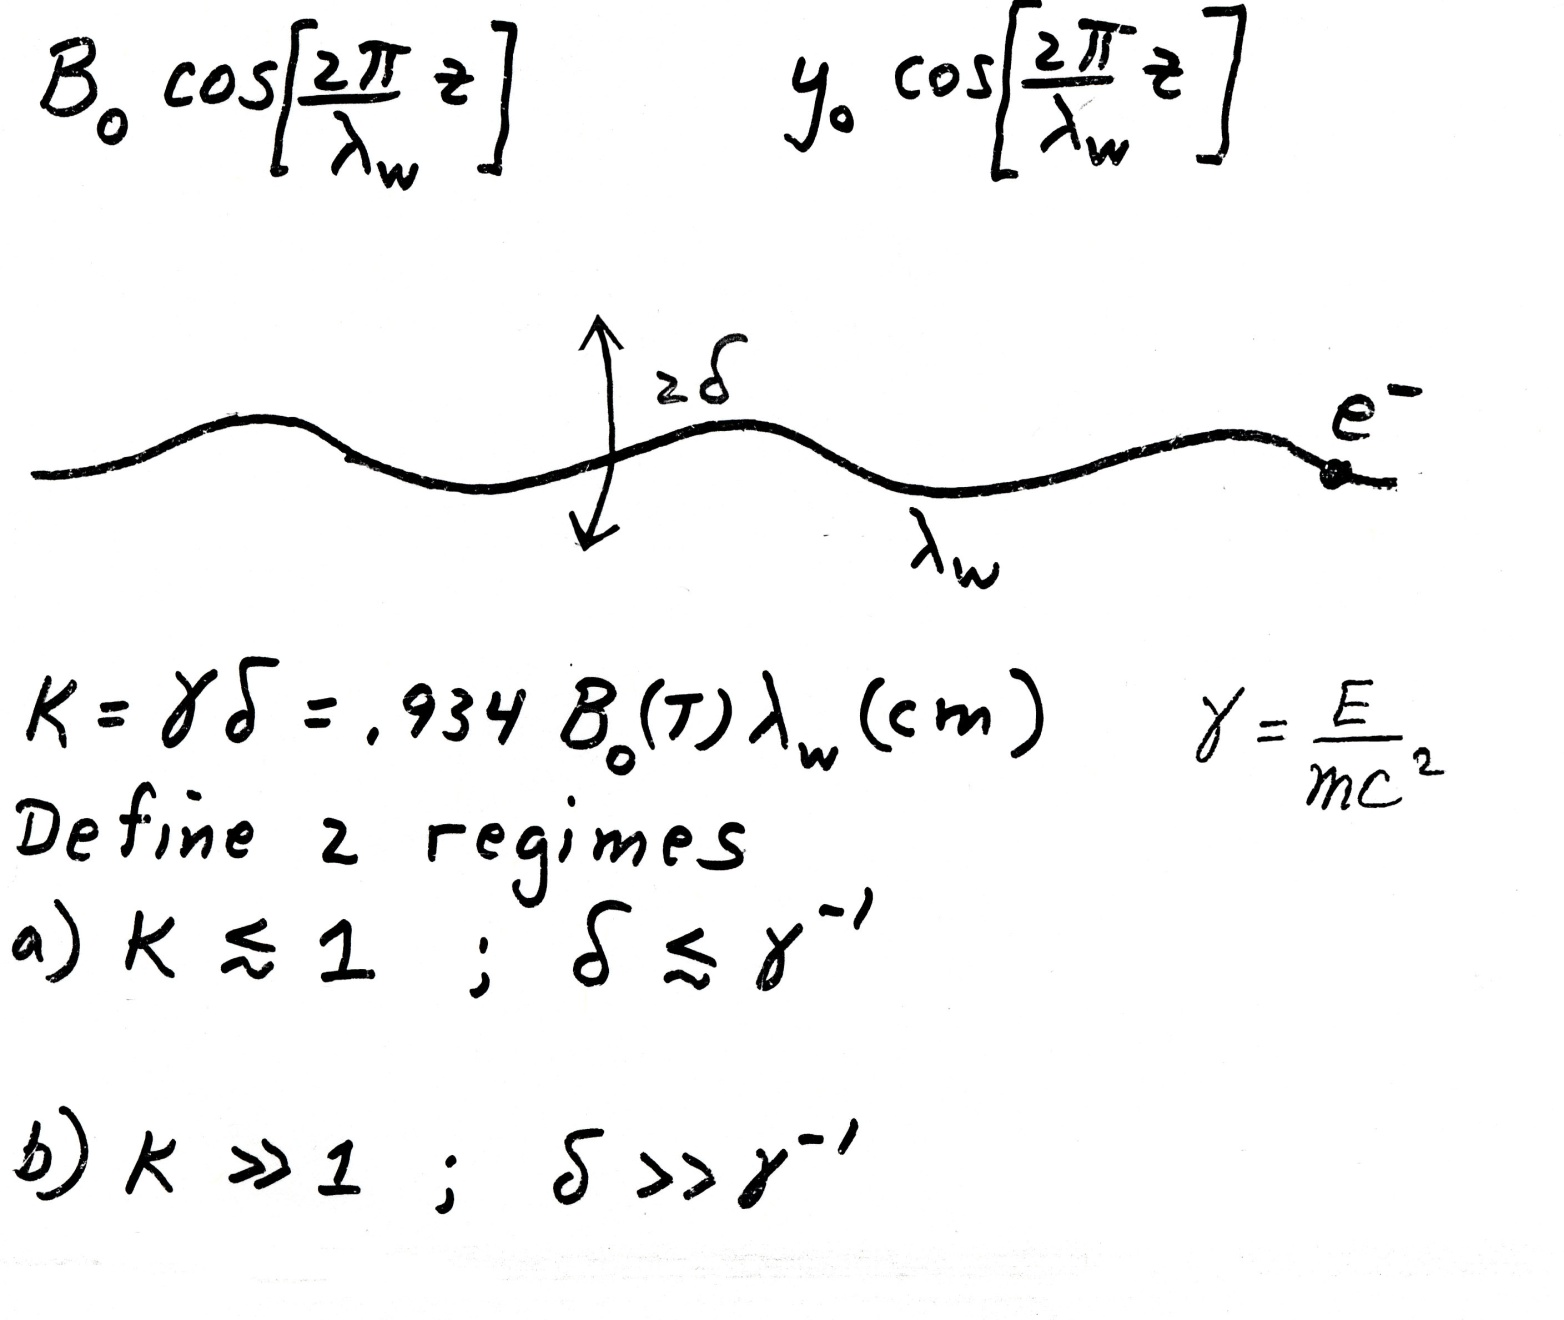 B₀ cos[2π/λw z] y₀ cos[2π/λw z]
2δ
e⁻
λw
K = γδ = .934 B₀(T) λw (cm) γ = E/mc²
Define 2 regimes
a) K ≲ 1 ; δ ≲ γ⁻¹
b) K >> 1 ; δ >> γ⁻¹